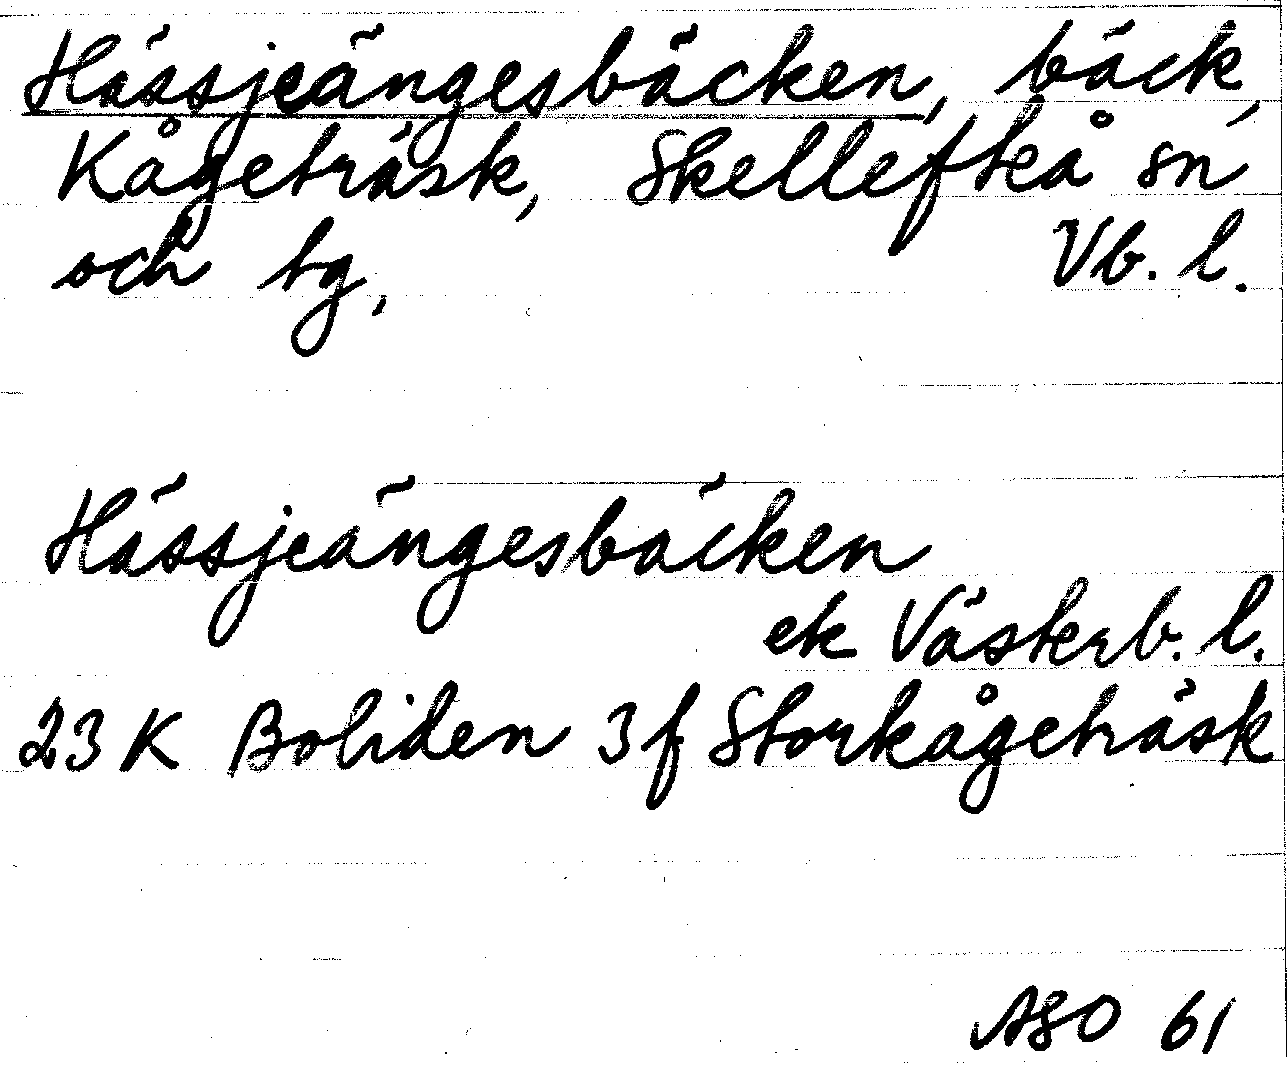 Hässjeängesbäcken, bäck,
Kågeträsk, Skellefteå sn
och tg, Vb. l.
Hässjeängesbäcken
ek Västerb. l.
23 K Boliden 3 f Storkågeträsk
ASO 61